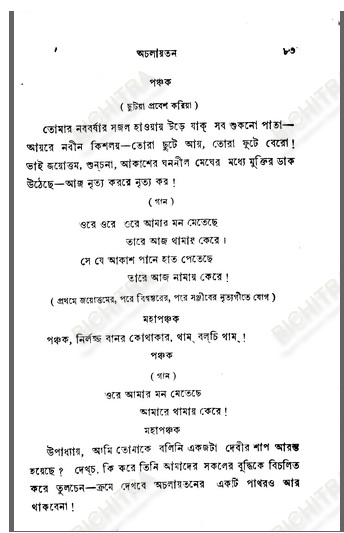 অচলায়তন ৮৩
পঞ্চক
( ছুটিয়া প্রবেশ করিয়া )
তোমার নববর্ষার সজল হাওয়ায় উড়ে যাক্ সব শুকনো পাতা—
আয়রে নবীন কিশলয়—তোরা ছুটে আয়, তোরা ফুটে বেরো!
ভাই জয়োত্তম, শুন্‌চনা, আকাশের ঘননীল মেঘের মধ্যে মুক্তির ডাক
উঠেছে—আজ নৃত্য কররে নৃত্য কর!
( গান )
ওরে ওরে ওরে আমার মন মেতেছে
তারে আজ থামায় কেরে।
সে যে আকাশ পানে হাত পেতেছে
তারে আজ নামায় কেরে!
( প্রথমে জয়োত্তমের, পরে বিশ্বম্ভরের, পরে সঞ্জীবের নৃত্যগীতে যোগ )
মহাপঞ্চক
পঞ্চক, নির্লজ্জ বানর কোথাকার, থাম্ বল্‌চি থাম্!
পঞ্চক
( গান )
ওরে আমার মন মেতেছে
আমারে থামায় কেরে!
মহাপঞ্চক
উপাধ্যায়, আমি তোমাকে বলিনি একজটা দেবীর শাপ আরম্ভ
হয়েছে? দেখ্‌চ, কি করে তিনি আমাদের সকলের বুদ্ধিকে বিচলিত
করে তুলচেন—ক্রমে দেখবে অচলায়তনের একটি পাথরও আর
থাকবেনা!
BICHITRA